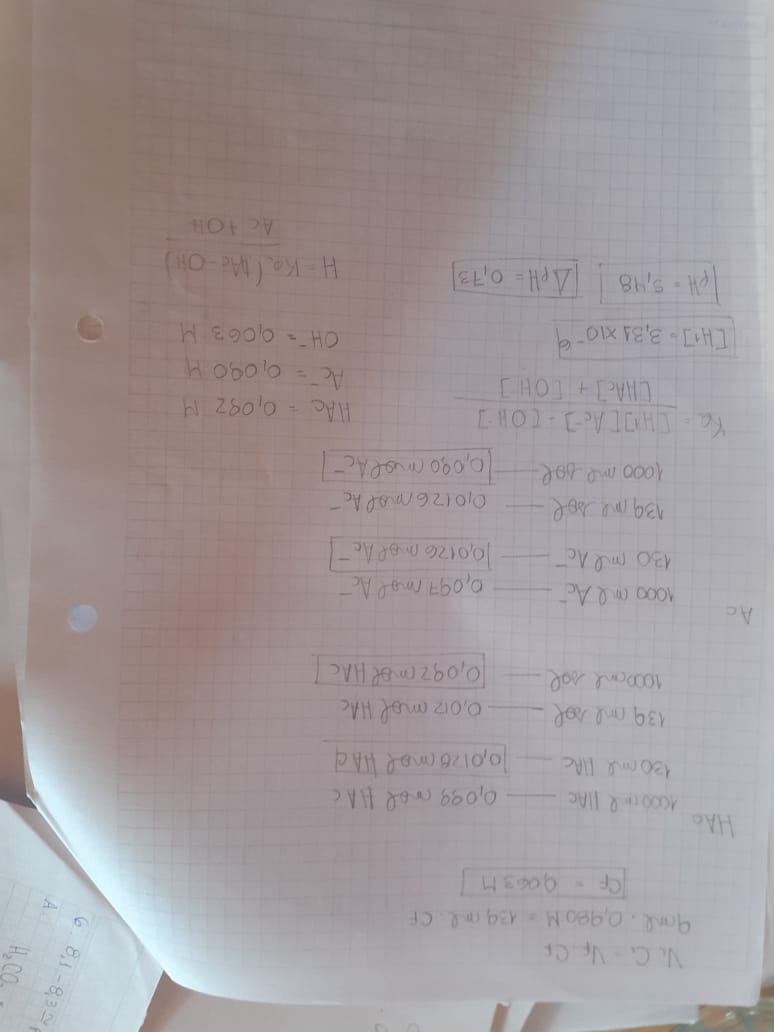 Vi. Ci = VF. CF
9ml. 0,980 M = 139 ml. CF
CF = 0,063 M
HAc
1000 ml HAc — 0,099 mol HAc
130 ml HAc — 0,0128 mol HAc
139 ml sol — 0,012 mol HAc
1000 ml sol — 0,092 mol HAc
Ac
1000 ml Ac⁻ — 0,097 mol Ac⁻
130 ml Ac⁻ — 0,0126 mol Ac⁻
139 ml sol — 0,0126 mol Ac⁻
1000 ml sol — 0,090 mol Ac⁻
Ka = [H+][Ac⁻] - [OH⁻]
[HAc] + [OH⁻]
HAc = 0,092 M
Ac⁻ = 0,090 M
OH⁻ = 0,063 M
[H+] = 3,31 x 10⁻⁶
pH = 5,48 ΔpH = 0,73
H = Ka (HAc - OH)
Ac + OH
6. 8,1 - 8,3
A. H₂CO